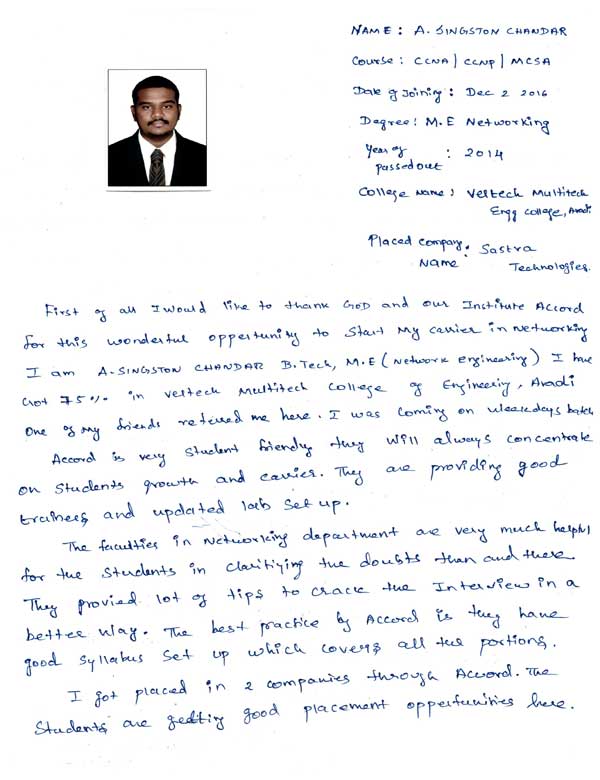 NAME : A. SINGSTON CHANDAR
Course : CCNA | CCNP | MCSA
Date of Joining : Dec 2 2016
Degree : M.E Networking
Year of passedout : 2014
College Name : Veltech Multitech
Engg College, Avadi.
Placed company Name : Sastra
Technologies.
First of all I would like to thank GOD and our Institute Accord
for this wonderful oppertunity to start My carrier in Networking
I am A.SINGSTON CHANDAR B.Tech, M.E (Network Engineering) I have
Got 75% in veltech Multitech College of Engineering, Avadi
One of my friends refered me here. I was coming on weekdays batch
Accord is very student friendly they will always concentrate
on students growth and carrier. They are providing good
trainers and updated lab set up.
The faculties in Networking department are very much helpful
for the students in clarifying the doubts than and there
They provied lot of tips to crack the Interview in a
better way. The best practice by Accord is they have
good syllabus set up which covers all the portions.
I got placed in 2 companies through Accord. The
Students are getting good placement oppertunities here.